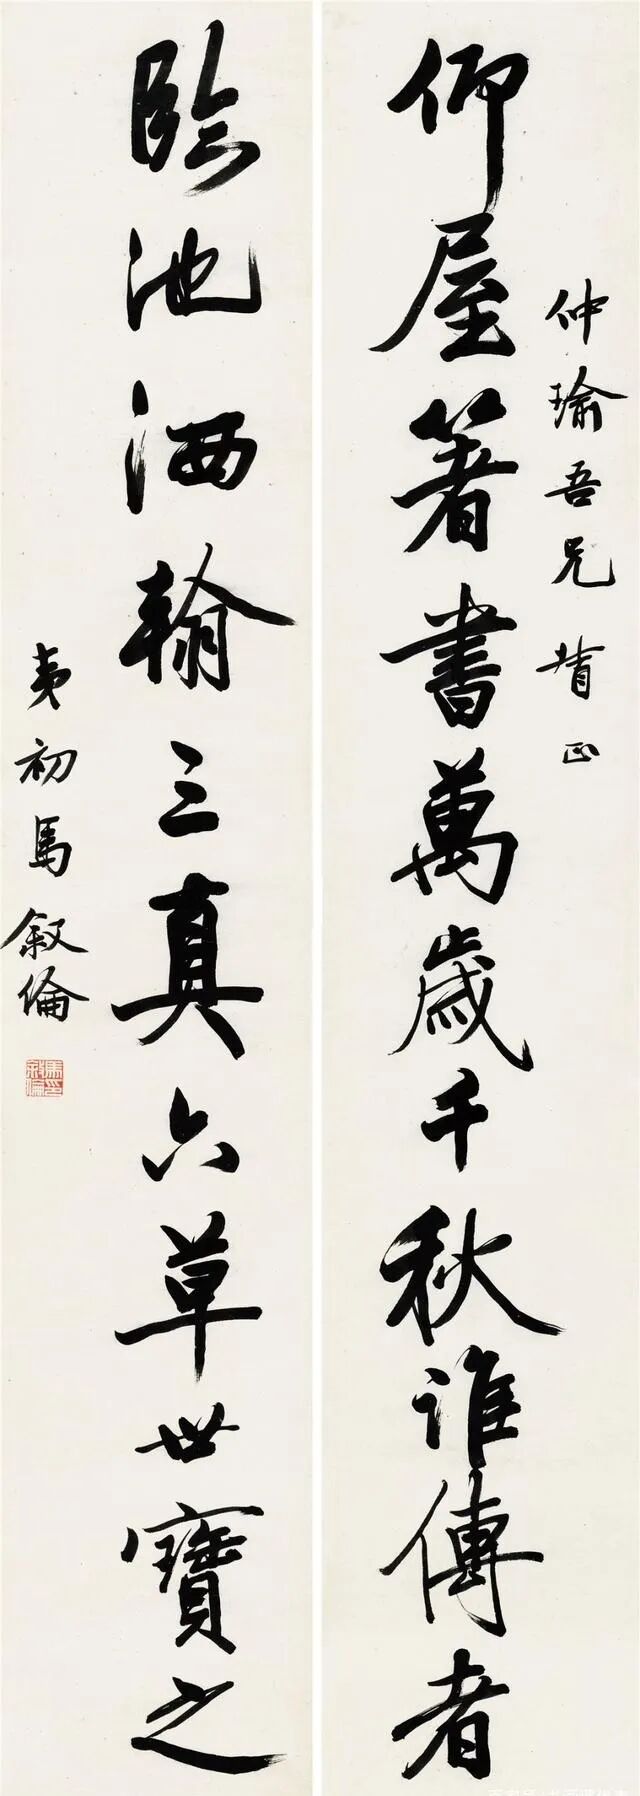 仲瑜吾兄督正
仰屋著書萬歲千秋誰傳者
臨池洒翰三真六草世寶之
夷初馬叙倫